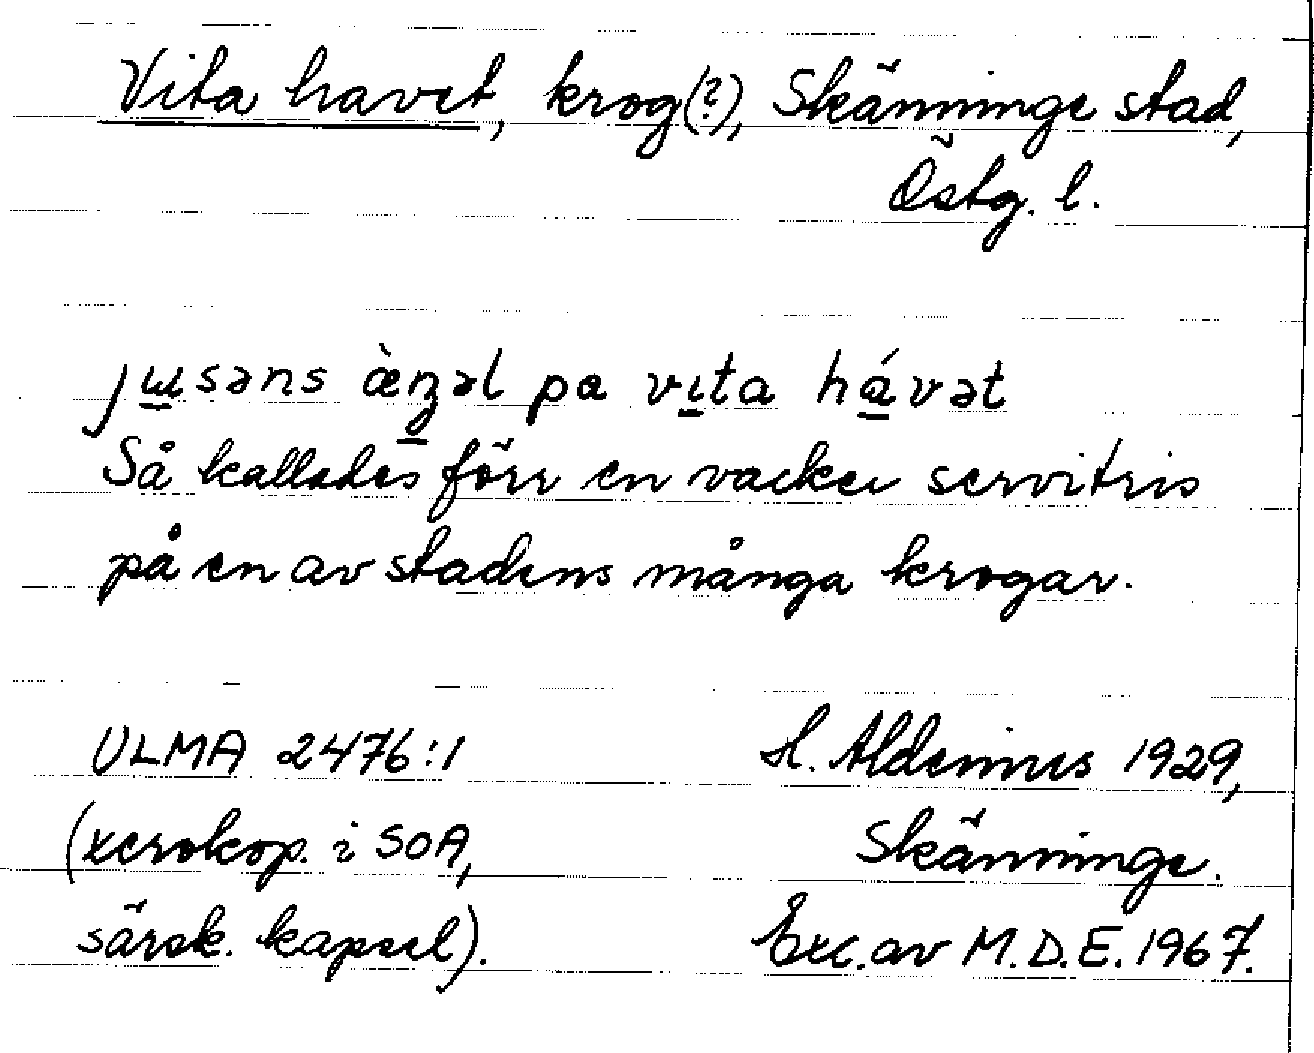 Vita havet, krog(?), Skänninge stad,
Östg. l.
jɯsəns æ̀ŋəl pa vɩta hávət
Så kallades förr en vacker servitris
på en av stadens många krogar.
ULMA 2476:1
H. Aldenius 1929,
(xerokop. i SOA,
Skänninge.
särsk. kapsel).
Exc. av M.D.E. 1967.